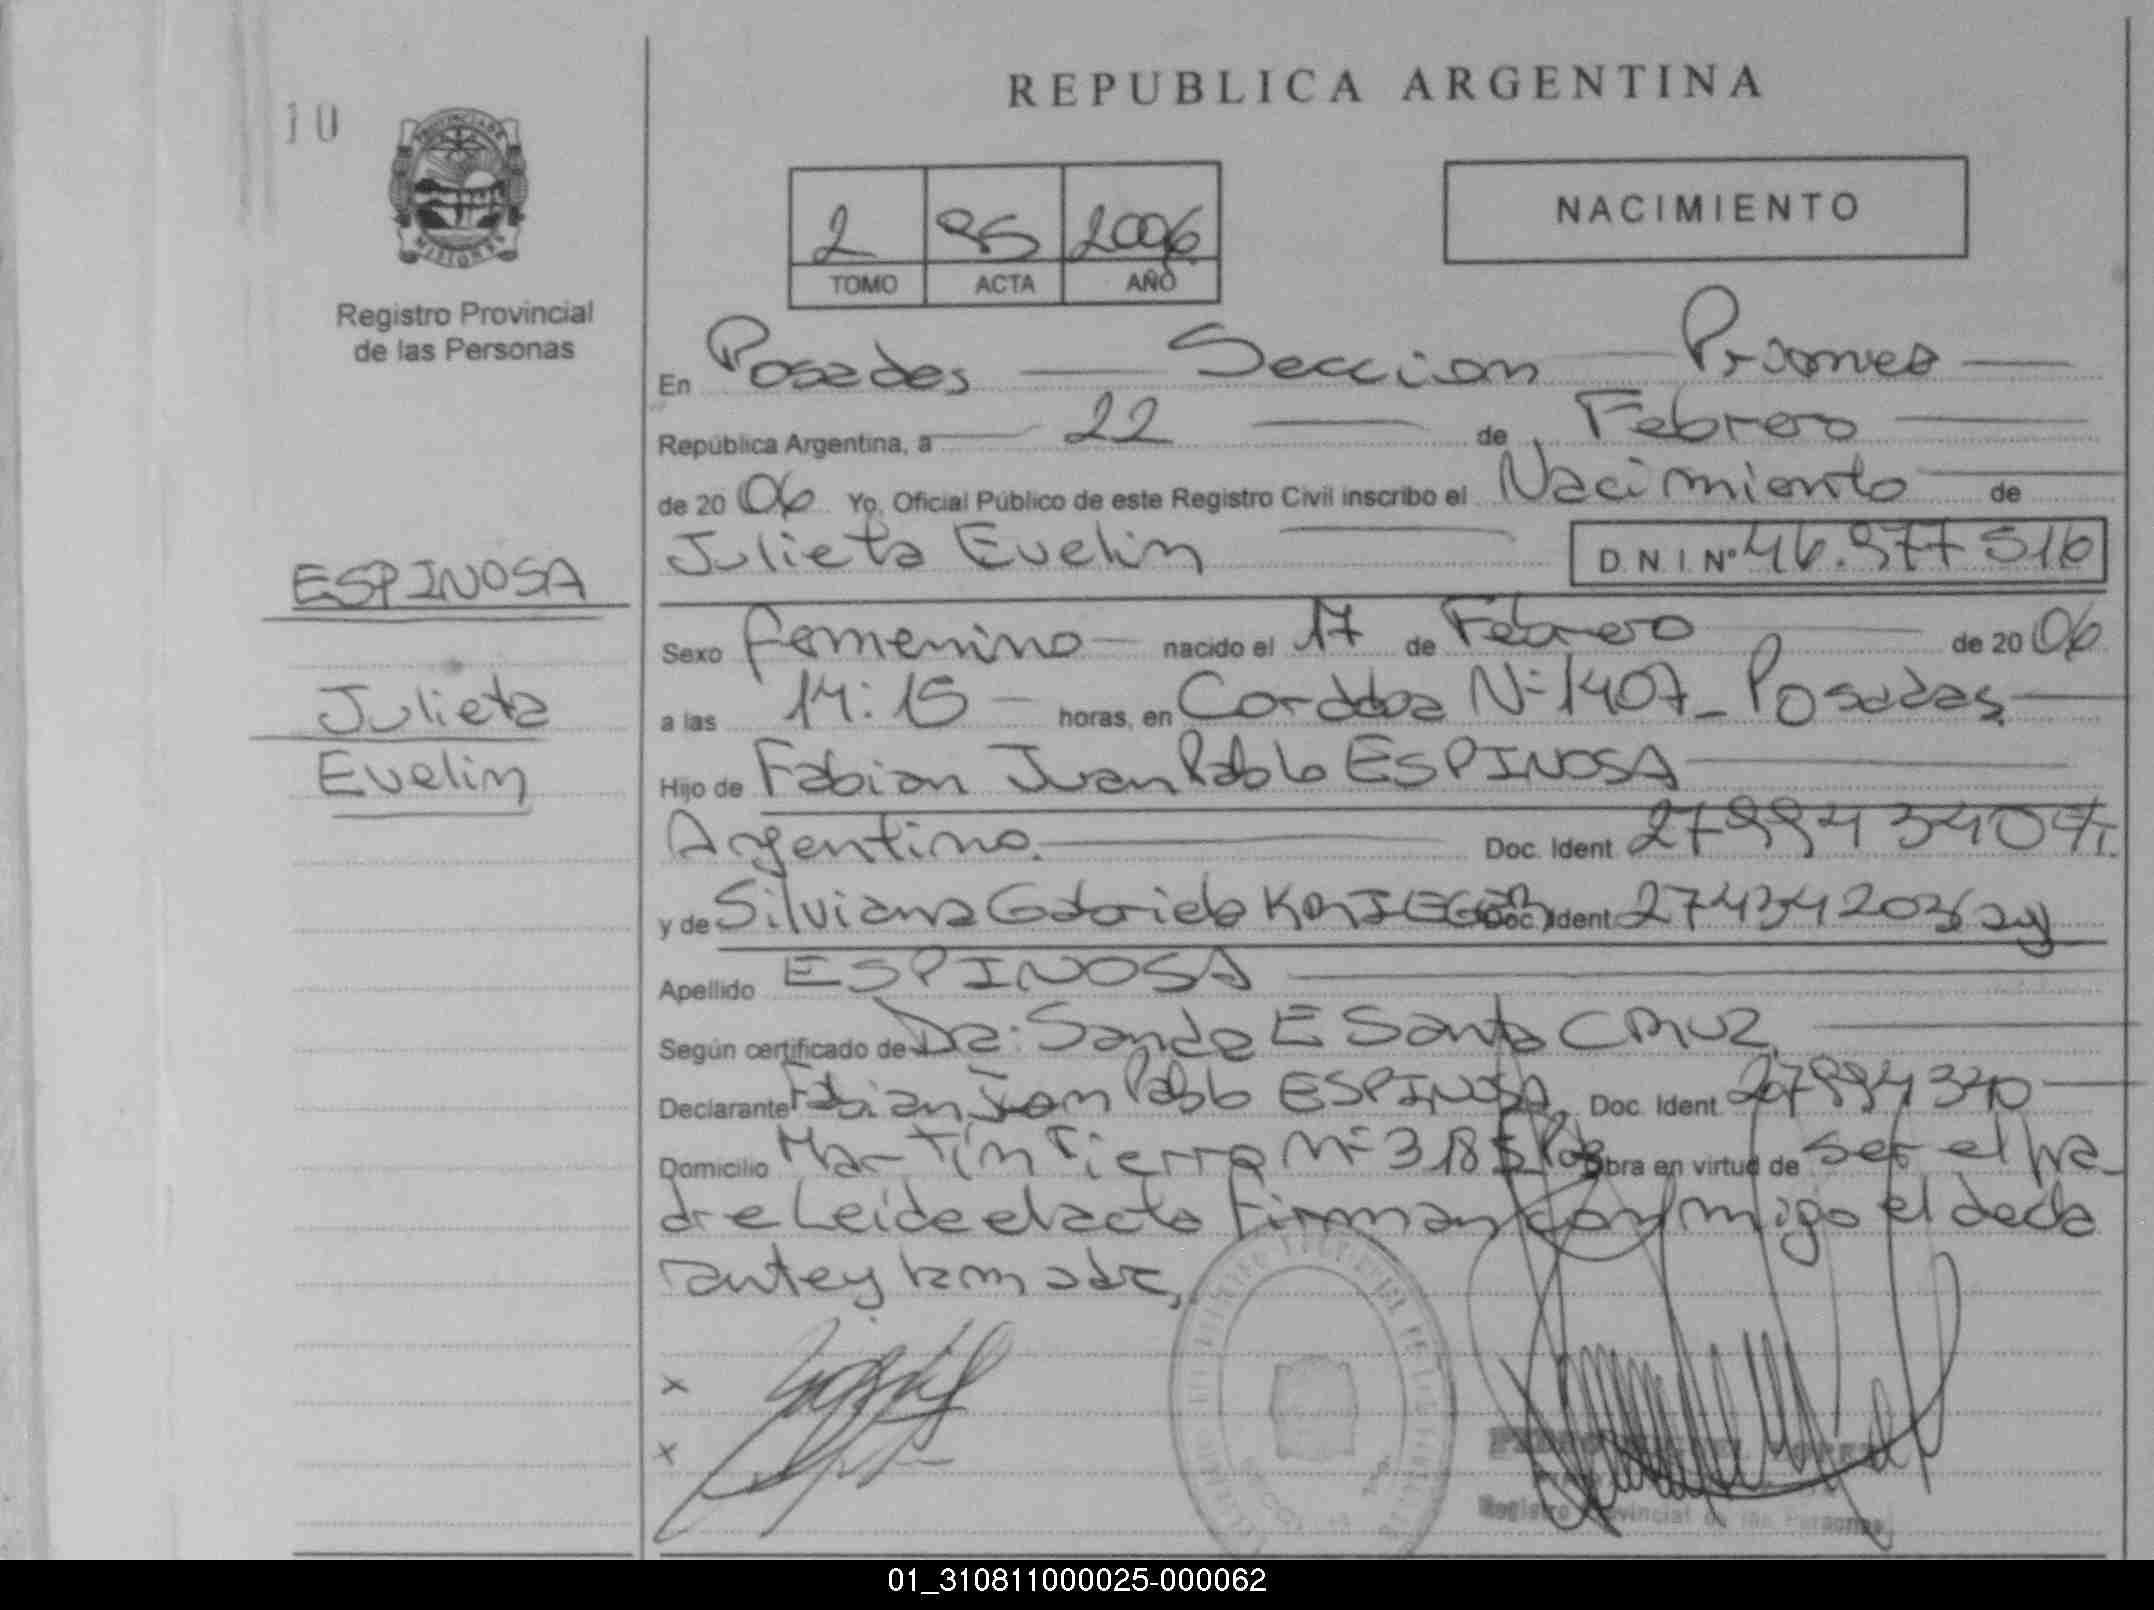 10
REPUBLICA ARGENTINA
NACIMIENTO
2 95 2006
TOMO ACTA AÑO
Registro Provincial
de las Personas
En Posadas Seccion Primera
República Argentina, a 22 de Febrero
de 2006 Yo, Oficial Público de este Registro Civil inscribo el Nacimiento de
Julieta Evelin D.N.I. Nº 46.977 516
ESPINOSA
Julieta
Evelin
Sexo femenino nacido el 17 de Febrero de 2006
a las 14:15 horas, en Cordoba Nº 1407 - Posadas
Hijo de Fabian Juan Pablo ESPINOSA
Argentino. Doc. Ident 27994340
y de Silviana Gabriela Doc. Ident 27434203
Apellido ESPINOSA
Según certificado de Dra: Sandra E Santa CRUZ
Declarante Fabian Juan Pablo ESPINOSA, Doc. Ident 27994340
Domicilio Martín Fierro Nº 3185 Pdas Obra en virtud de ser el pa
dre Leida el acta Firman conmigo el decla
rante y la madre,
x
x
Registro Provincial de las Personas
01_310811000025-000062